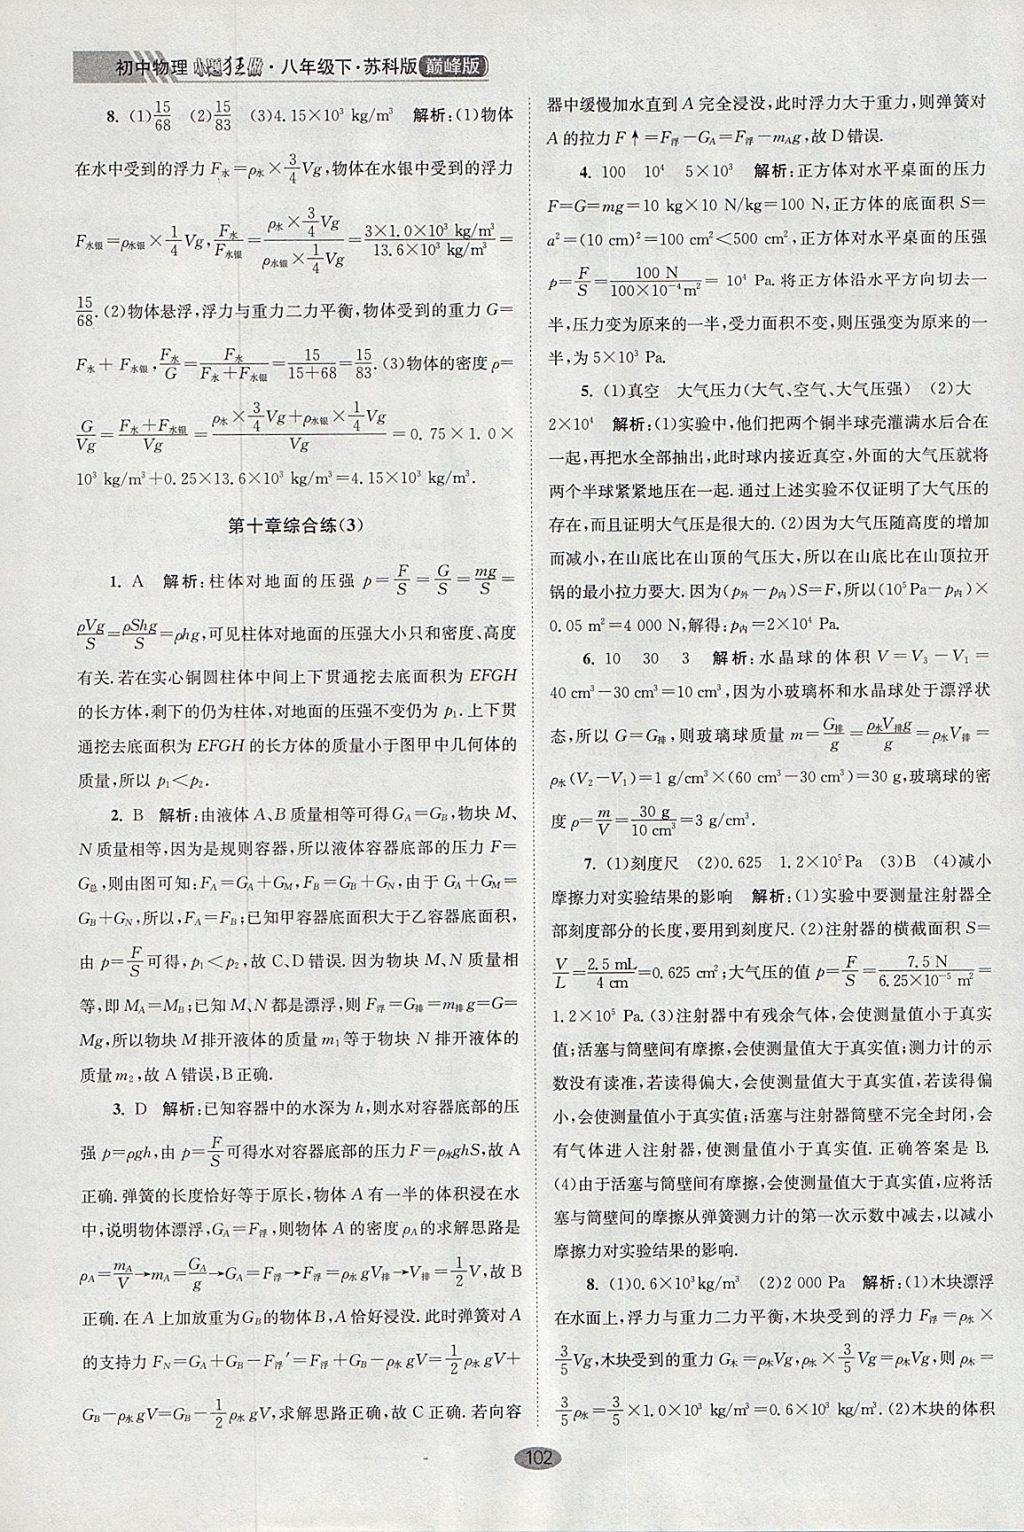 初中物理 小题狂做·八年级下·苏科版 巅峰版
8. (1)15/68 (2)15/83 (3)4.15×10³ kg/m³ 解析:(1)物体
在水中受到的浮力 F水=ρ水×3/4Vg,物体在水银中受到的浮力
F水银=ρ水银×1/4Vg,F水/F水银=(ρ水×3/4Vg)/(ρ水银×1/4Vg)=(3×1.0×10³ kg/m³)/(13.6×10³ kg/m³)=
15/68.(2)物体悬浮,浮力与重力二力平衡,物体受到的重力 G=
F水+F水银,F水/G=F水/(F水+F水银)=15/(15+68)=15/83.(3)物体的密度 ρ=
G/Vg=(F水+F水银)/Vg=(ρ水×3/4Vg+ρ水银×1/4Vg)/Vg=0.75×1.0×
10³ kg/m³+0.25×13.6×10³ kg/m³=4.15×10³ kg/m³.
第十章综合练(3)
1. A 解析:柱体对地面的压强 p=F/S=G/S=mg/S=
ρVg/S=ρShg/S=ρhg,可见柱体对地面的压强大小只和密度、高度
有关.若在实心铜圆柱体中间上下贯通挖去底面积为 EFGH
的长方体,剩下的仍为柱体,对地面的压强不变仍为 p₁.上下贯
通挖去底面积为 EFGH 的长方体的质量小于图甲中几何体的
质量,所以 p₁<p₂.
2. B 解析:由液体 A、B 质量相等可得 G_A=G_B,物块 M、
N 质量相等,因为是规则容器,所以液体容器底部的压力 F=
G总,则由图可知:F_A=G_A+G_M,F_B=G_B+G_N,由于 G_A+G_M=
G_B+G_N,所以,F_A=F_B;已知甲容器底面积大于乙容器底面积,
由 p=F/S可得,p₁<p₂,故 C、D 错误.因为物块 M、N 质量相
等,即 M_A=M_B;已知 M、N 都是漂浮,则 F浮=G排=m排g=G=
Mg,所以物块 M 排开液体的质量 m₁ 等于物块 N 排开液体的
质量 m₂,故 A 错误,B 正确.
3. D 解析:已知容器中的水深为 h,则水对容器底部的压
强 p=ρgh,由 p=F/S可得水对容器底部的压力 F=ρ水ghS,故 A
正确.弹簧的长度恰好等于原长,物体 A 有一半的体积浸在水
中,说明物体漂浮,G_A=F浮,则物体 A 的密度 ρ_A 的求解思路是
ρ_A=m_A/V→m_A=G_A/g→G_A=F浮→F浮=ρ水gV排→V排=1/2V,故 B
正确.在 A 上加放重为 G_B 的物体 B,A 恰好浸没.此时弹簧对 A
的支持力 F_N=G_A+G_B-F浮′=F浮+G_B-ρ水gV=1/2ρ水gV+
G_B-ρ水gV=G_B-1/2ρ水gV,求解思路正确,故 C 正确.若向容
器中缓慢加水直到 A 完全浸没,此时浮力大于重力,则弹簧对
A 的拉力 F↑=F浮-G_A=F浮-m_Ag,故 D 错误.
4. 100 10⁴ 5×10³ 解析:正方体对水平桌面的压力
F=G=mg=10 kg×10 N/kg=100 N,正方体的底面积 S=
a²=(10 cm)²=100 cm²<500 cm²,正方体对水平桌面的压强
p=F/S=100 N/(100×10⁻⁴m²)=10⁴ Pa.将正方体沿水平方向切去一
半,压力变为原来的一半,受力面积不变,则压强变为原来的一
半,为 5×10³ Pa.
5. (1)真空 大气压力(大气、空气、大气压强) (2)大
2×10⁴ 解析:(1)实验中,他们把两个铜半球壳灌满水后合在
一起,再把水全部抽出,此时球内接近真空,外面的大气压就将
两个半球紧紧地压在一起.通过上述实验不仅证明了大气压的
存在,而且证明大气压是很大的.(2)因为大气压随高度的增加
而减小,在山底比在山顶的气压大,所以在山底比在山顶拉开
锅的最小拉力要大.因为(p外-p内)S=F,所以(10⁵Pa-p内)×
0.05 m²=4 000 N,解得:p内=2×10⁴ Pa.
6. 10 30 3 解析:水晶球的体积 V=V₃-V₁=
40 cm³-30 cm³=10 cm³,因为小玻璃杯和水晶球处于漂浮状
态,所以 G=G排,则玻璃球质量 m=G排/g=ρ水V排g/g=ρ水V排=
ρ水(V₂-V₁)=1 g/cm³×(60 cm³-30 cm³)=30 g,玻璃球的密
度 ρ=m/V=30 g/10 cm³=3 g/cm³.
7. (1)刻度尺 (2)0.625 1.2×10⁵Pa (3)B (4)减小
摩擦力对实验结果的影响 解析:(1)实验中要测量注射器全
部刻度部分的长度,要用到刻度尺.(2)注射器的横截面积 S=
V/L=2.5 mL/4 cm=0.625 cm²;大气压的值 p=F/S=7.5 N/(6.25×10⁻⁵ m²)=
1.2×10⁵ Pa.(3)注射器中有残余气体,会使测量值小于真实
值;活塞与筒壁间有摩擦,会使测量值大于真实值;测力计的示
数没有读准,若读得偏大,会使测量值大于真实值,若读得偏
小,会使测量值小于真实值;活塞与注射器筒壁不完全封闭,会
有气体进入注射器,使测量值小于真实值.正确答案是 B.
(4)由于活塞与筒壁间有摩擦,会使测量值大于真实值,应将活
塞与筒壁间的摩擦从弹簧测力计的第一次示数中减去,以减小
摩擦力对实验结果的影响.
8. (1)0.6×10³kg/m³ (2)2 000 Pa 解析:(1)木块漂浮
在水面上,浮力与重力二力平衡,木块受到的浮力 F浮=ρ水×
3/5Vg,木块受到的重力 G木=ρ木Vg,ρ水×3/5Vg=ρ木Vg,则 ρ木=
3/5ρ水=3/5×1.0×10³ kg/m³=0.6×10³ kg/m³.(2)木块的体积
102